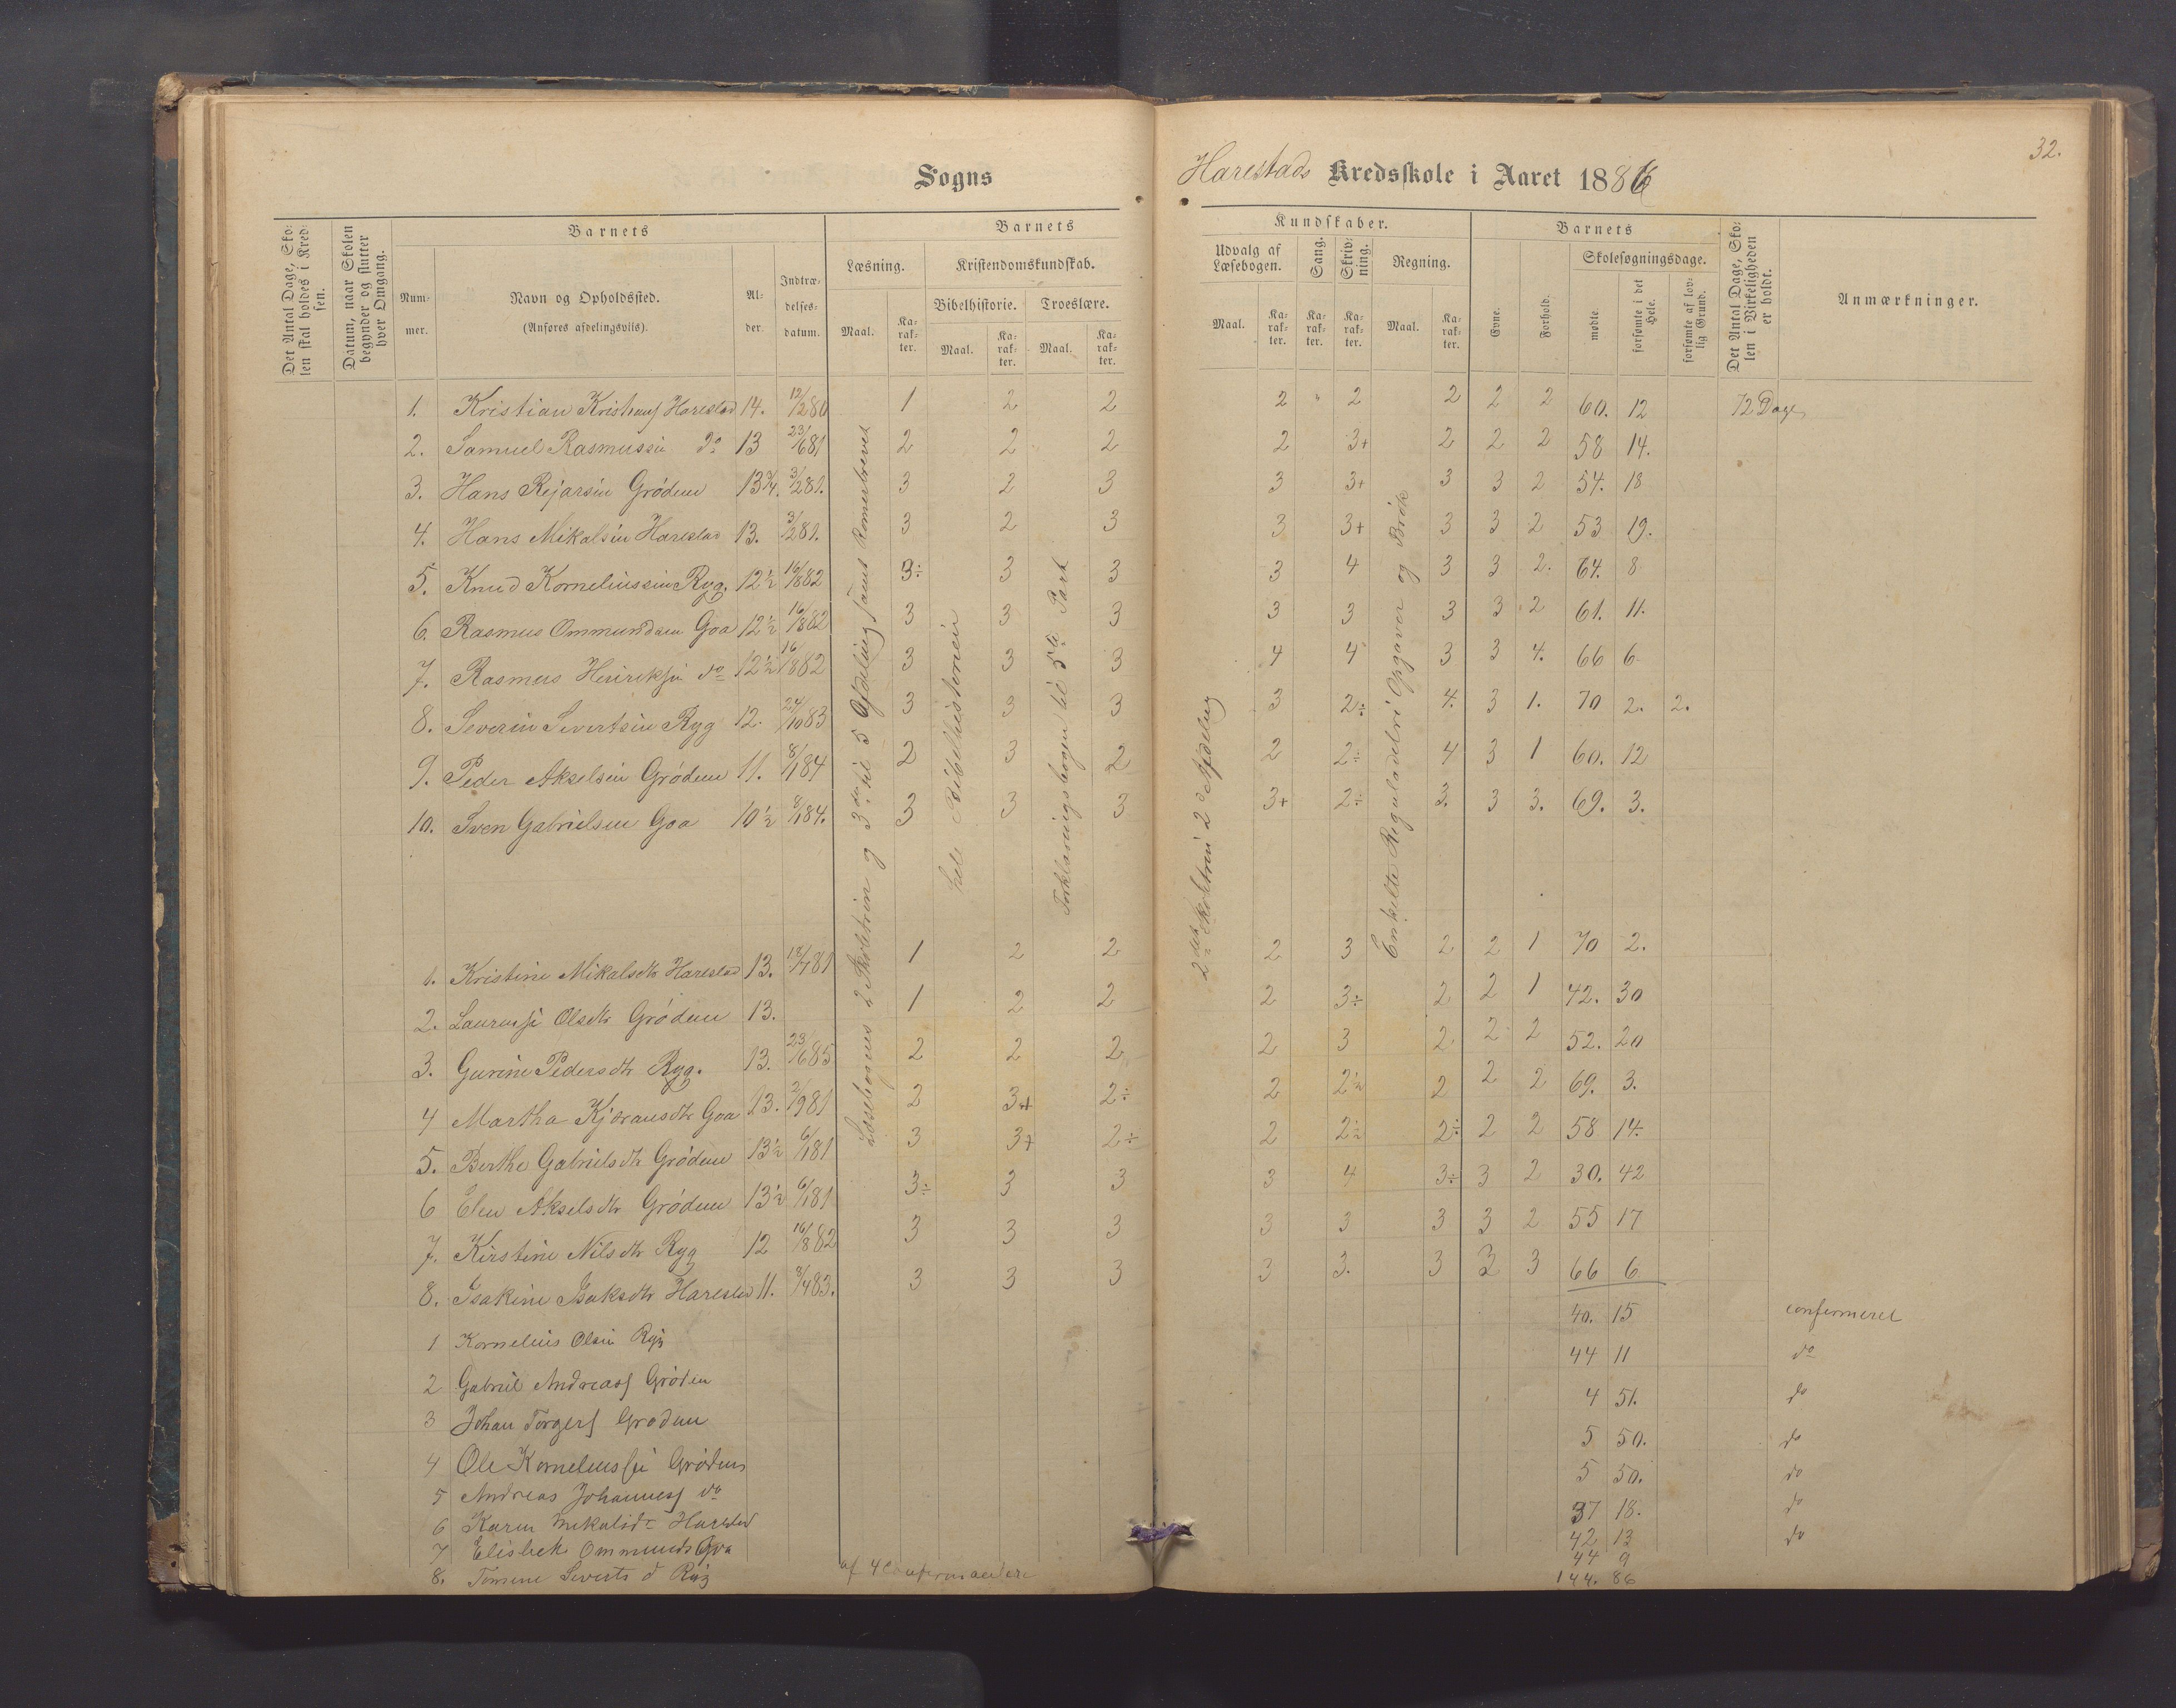 32.
Sogns Harestads Kredsskole i Aaret 1886
Det Antal Dage, Skolen skal holdes i Kredsen.
Datum, naar Skolen begynder og slutter hver Omgang.
Barnets
Nummer.
Navn og Opholdssted.
(Anføres afdelingsvis).
Alder.
Indtrædelsesdatum.
Barnets Kundskaber.
Læsning.
Maal.
Karakter.
Kristendomskundskab.
Bibelhistorie.
Maal.
Karakter.
Troeslære.
Maal.
Karakter.
Udvalg af Læsebogen.
Maal.
Karakter.
Sang.
Karakter.
Skrivning.
Karakter.
Regning.
Maal.
Karakter.
Barnets
Evne.
Forhold.
Skolesøgningsdage.
mødte.
forsømte i det Hele.
forsømte af lovlig Grund.
Det Antal Dage, Skolen i Virkeligheden er holdt.
Anmærkninger.
1. Kristian Kristians Harestad 14. 12/2 80 1 2 2 2 " 2 2 2 2 60. 12 72 Dage
2. Samuel Rasmussen do 13 23/6 81 2 2 2 2 3+ 2 2 2 58 14.
3. Hans Rejarsen Grødem 13 3/4. 3/2 81. 3 2 3 3 3+ 3 3 2 54. 18
4. Hans Mikalsen Harestad 13. 3/2 81. 3 2 3 3 3+ 3 3 2 53 19.
5. Knud Korneliussen Ryg. 12 1/2 16/8 82 3÷ 3 3 3 4 3 3 2. 64. 8
6. Rasmus Ommundsen Goa 12 1/2 16/8 82 3 3 3 3 3 3 3 2 61. 11.
7. Rasmus Henriksen do 12 1/2 16/8 82 3 3 3 4 4 3 3 4. 66 6
8. Severin Sivertsen Ryg 12. 24/10 83 3 3 3 3 2÷ 4. 3 1. 70 2. 2.
9. Peder Akselsen Grødem 11. 8/1 84 2 3 2 2 2÷ 4 3 1 60. 12
10. Sven Gabrielsen Goa 10 1/2 8/1 84. 3 3 3 3+ 2÷ 3. 3 3. 69. 3.
Læsebogens 2 Skoletrin og 3die til 5 Afdeling samt Romerbrevet
hele Bibelhistorien
Forklaringsbogen til 5te Part
2det Skoletrin 2 Afdeling
Enkelte Reguladetri Opgaver og Brøk
1. Kristine Mikalsdtr Harestad 13. 18/7 81 1 2 2 2 3 2 2 1 70 2.
2. Olsdtr Grødem 13. 1 2 2 2 3÷ 2 2 1 42. 30
3. Gurine Pedersdtr Ryg. 13. 23/6 85 2 2 2 2 3 2 2 2 52. 20
4 Martha Kjøransdtr Goa 13. 2/9 81 2 3+ 2÷ 2 2 1/2 2 2 2 69. 3.
5. Berthe Gabrielsdtr Grødem 13 1/2 6/1 81 3 3+ 2÷ 2 2 1/2 2÷ 2 2 58 14.
6 Elen Akselsdtr Grødem 13 1/2 6/1 81 3÷ 3 3 3 4 3÷ 3 2 30. 42
7. Kirstine Nilsdtr Ryg 12 16/8 82 3 3 3 3 3 3 3 2 55 17
8. Isakine Isaksdtr Harestad 11. 3/4 83. 3 3 3 3 3. 3 3 3 66 6
1 Kornelius Olsen Ryg 40. 15 confermeret
2 Gabriel Andreass Grødem 44 11 do
3 Johan Torgers Grødem 4 51. do
4 Ole Korneliussen Grødem 5 50. do
5 Andreas Johanness do 5 50. do
6 Karen Mekalsdr Harestad 37 18. do
7 Ommunds Goa 42 13 do
8. Severts d Ryg 44 9
af 4 Confermandere 144. 86